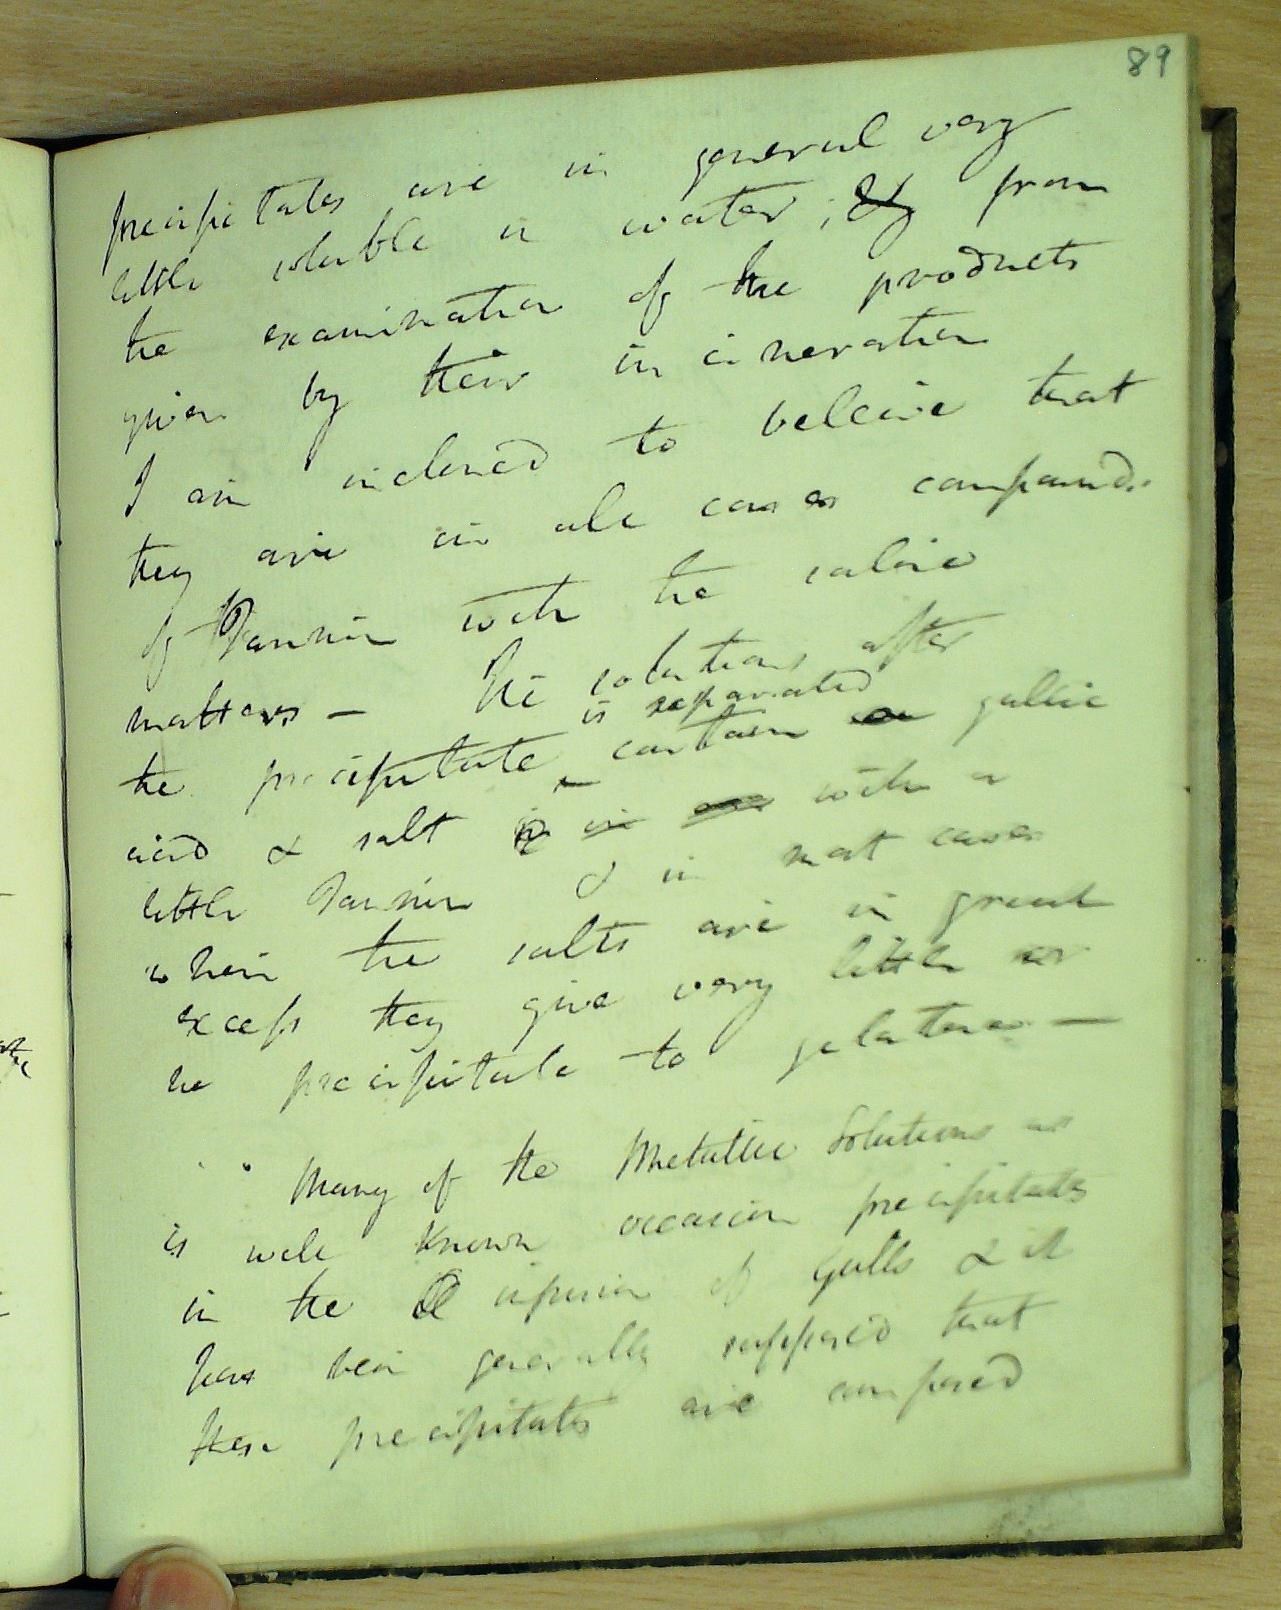 89
precipitates are in general very
little soluble in water; & from
the examination of the products
given by their incineration
I am inclined to beleive that
they are in all cases compounds
of Tannin with the saline
matters – The solutions after
is separated
the precipitate contain gallic
acid & salt in with a
little Tannin & in most cases
when the salts are in great
excess they give very little or
no precipitate to gelatine –
Many of the Metallic Solutions as
is well known occasion precipitates
in the infusion of Galls & it
has been generally supposed that
these precipitates are composed